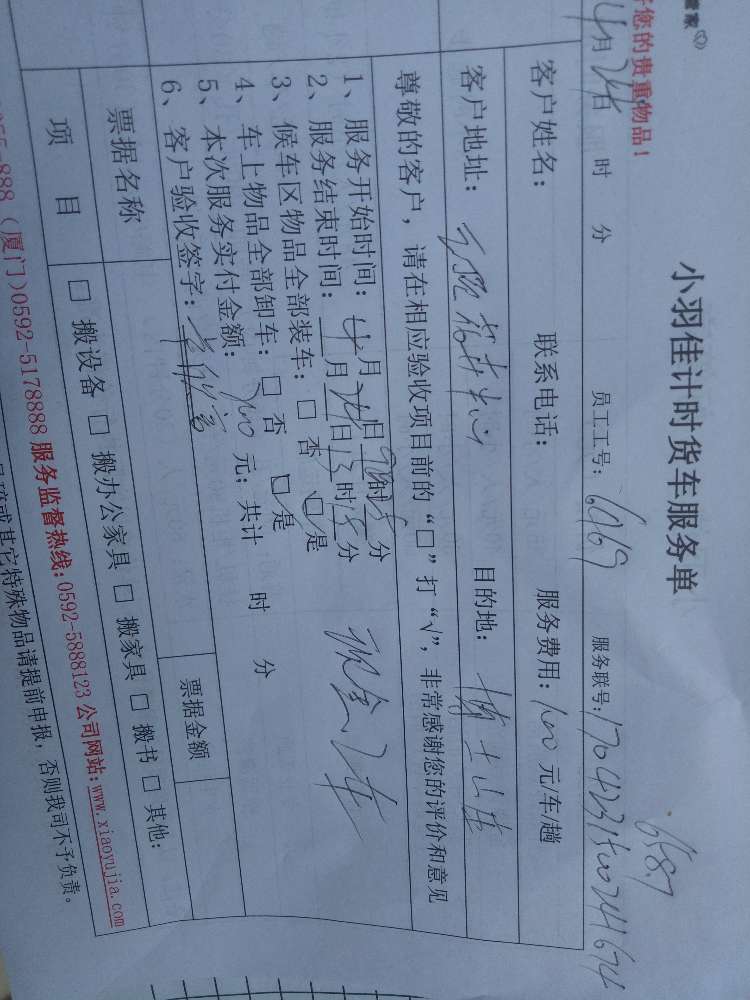 管家
您的贵重物品！
小羽佳计时货车服务单
4月24日 时 分 员工工号：6069 服务联号：
6587
客户姓名： 联系电话： 服务费用：100元/车/趟
客户地址： 目的地：博士山庄
尊敬的客户，请在相应验收项目前的“□”打“√”，非常感谢您的评价和意见
1、服务开始时间：4月24日 时 分
2、服务结束时间： 月 日 时 分
3、候车区物品全部装车：□否 □是
4、车上物品全部卸车：□否 □是
5、本次服务实付金额：200元；共计 时 分
6、客户验收签字：
现金2车
票据名称 票据金额
项目 □搬设备 □搬办公家具 □搬家具 □搬书 □其他：
55-888（厦门）0592-5178888 服务监督热线：0592-5888123 公司网站：www.xiaoyujia.com
或其它特殊物品请提前申报，否则我司不予负责。